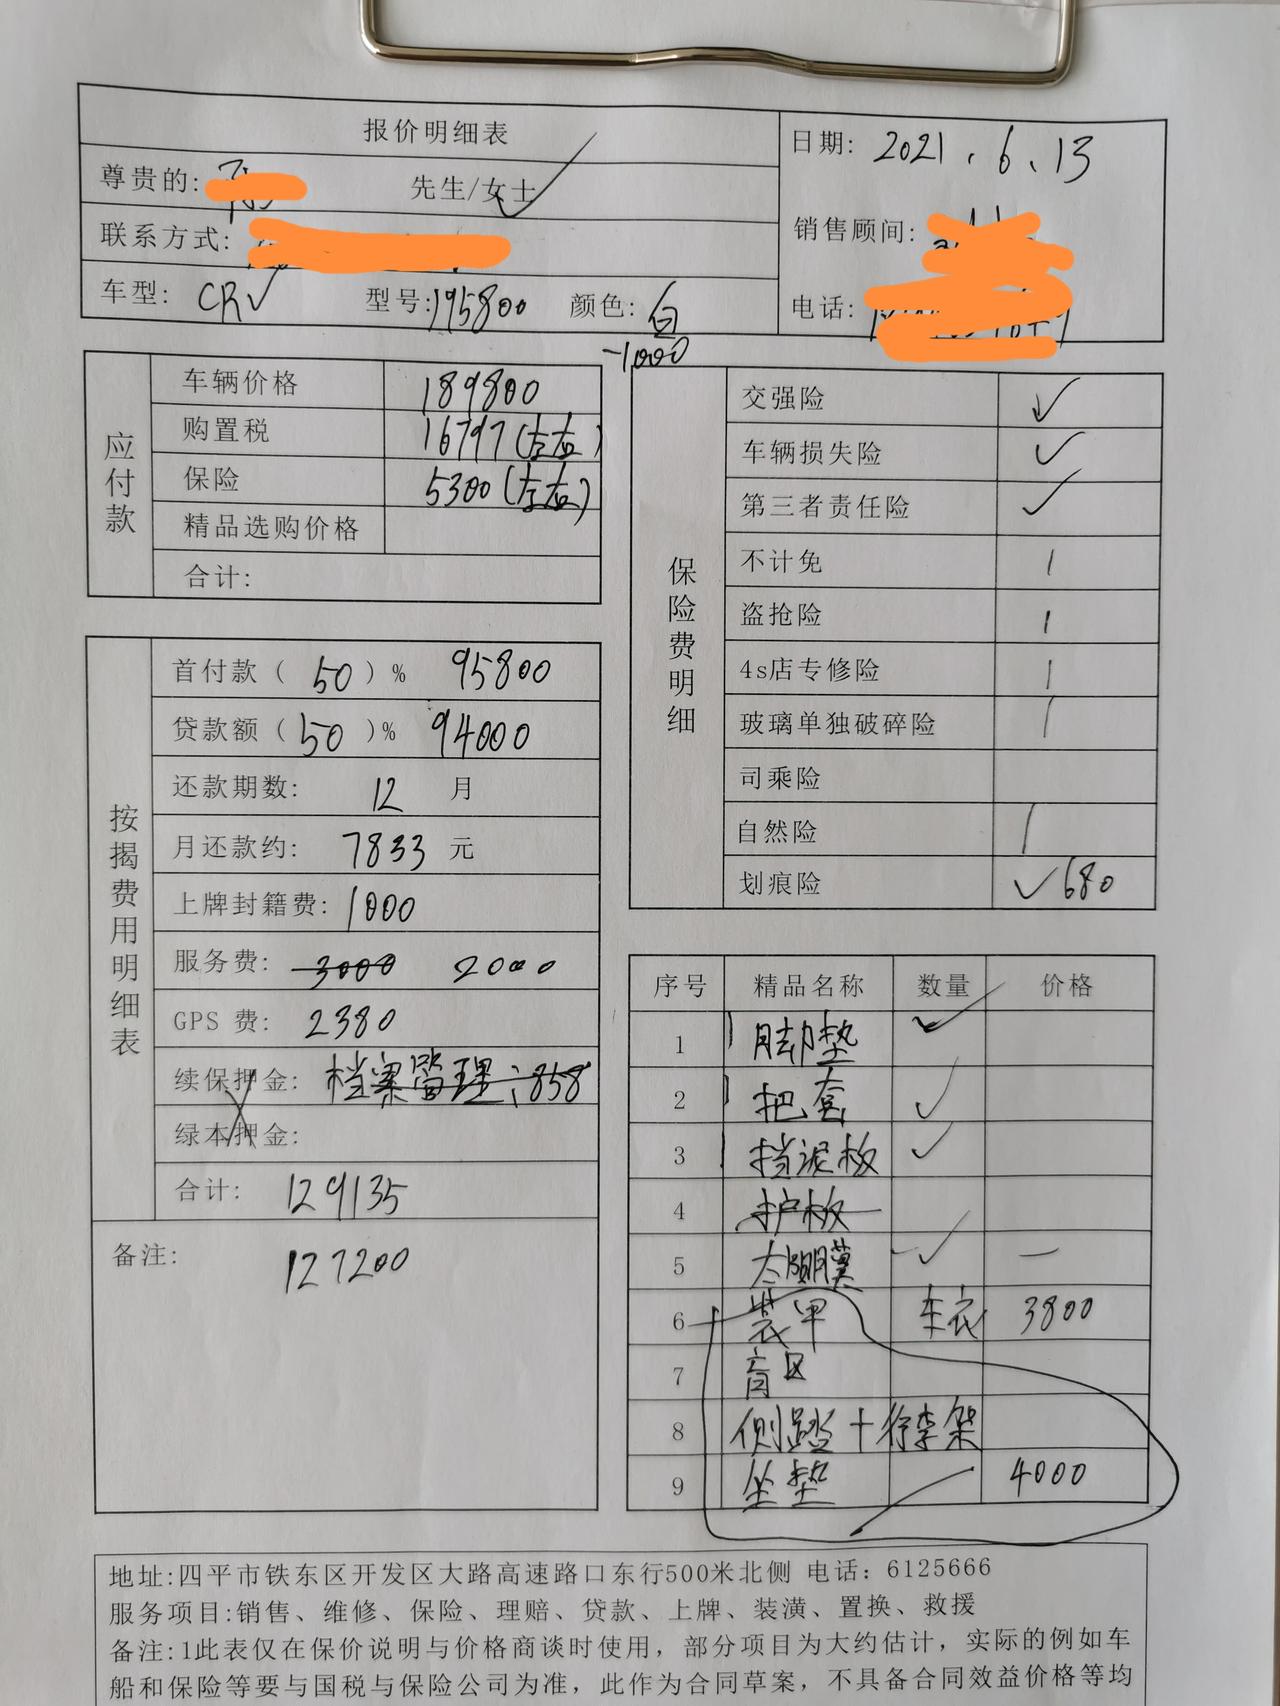 报价明细表
日期: 2021.6.13
尊贵的: 先生/女士
联系方式:
销售顾问:
车型: CRV 型号: 195800 颜色: 白
-1000
电话:
应付款
车辆价格 189800
购置税 16797(左右)
保险 5300(左右)
精品选购价格
合计:
保险费明细
交强险 ✓
车辆损失险 ✓
第三者责任险 ✓
不计免
盗抢险
4s店专修险
玻璃单独破碎险
司乘险
自然险
划痕险 ✓680
按揭费用明细表
首付款( 50 )% 95800
贷款额( 50 )% 94000
还款期数: 12 月
月还款约: 7833 元
上牌封籍费: 1000
服务费: 3000 2000
GPS 费: 2380
续保押金: 档案管理:858
绿本押金:
合计: 129135
备注: 127200
序号 精品名称 数量 价格
1 脚垫 ✓
2 把套 ✓
3 挡泥板 ✓
4 护板
5 太阳膜 ✓ —
6 装甲 车衣 3800
7 盲区
8 侧踏+行李架
9 坐垫 4000
地址:四平市铁东区开发区大路高速路口东行500米北侧 电话: 6125666
服务项目:销售、维修、保险、理赔、贷款、上牌、装潢、置换、救援
备注:1此表仅在保价说明与价格商谈时使用，部分项目为大约估计，实际的例如车
船和保险等要与国税与保险公司为准，此作为合同草案，不具备合同效益价格等均